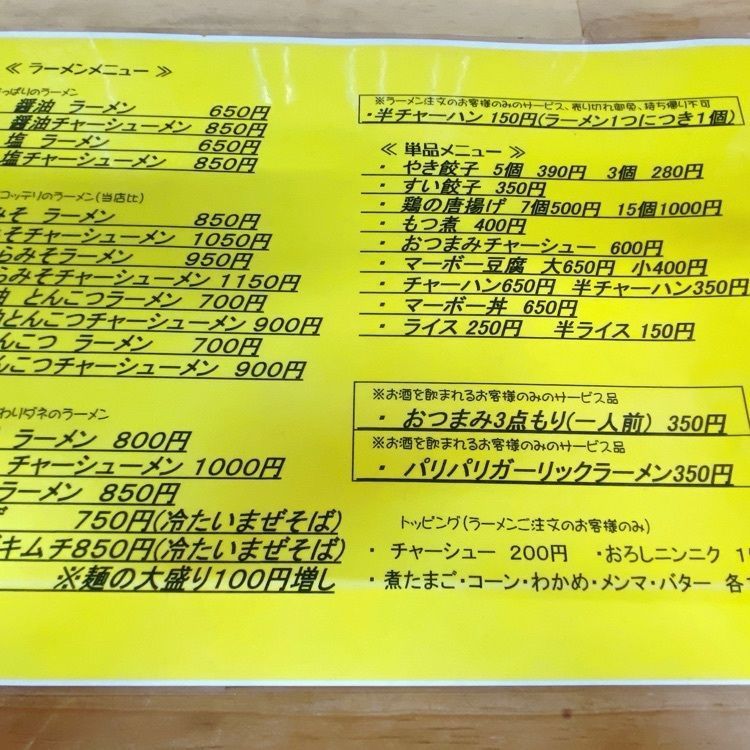 ≪ ラーメンメニュー ≫
っぱりのラーメン
醤油 ラーメン 650円
醤油チャーシューメン 850円
塩 ラーメン 650円
塩チャーシューメン 850円
コッテリのラーメン(当店比)
みそ ラーメン 850円
みそチャーシューメン 1050円
らみそラーメン 950円
らみそチャーシューメン 1150円
油 とんこつラーメン 700円
油とんこつチャーシューメン 900円
んこつ ラーメン 700円
んこつチャーシューメン 900円
わりダネのラーメン
ラーメン 800円
チャーシューメン 1000円
ラーメン 850円
750円(冷たいまぜそば)
キムチ850円(冷たいまぜそば)
※麺の大盛り100円増し
※ラーメン注文のお客様のみのサービス、売り切れ御免、持ち帰り不可
・半チャーハン 150円(ラーメン1つにつき1個)
≪ 単品メニュー ≫
・ やき餃子 5個 390円 3個 280円
・ すい餃子 350円
・ 鶏の唐揚げ 7個500円 15個1000円
・ もつ煮 400円
・ おつまみチャーシュー 600円
・ マーボー豆腐 大650円 小400円
・ チャーハン650円 半チャーハン350円
・ マーボー丼 650円
・ ライス 250円 半ライス 150円
※お酒を飲まれるお客様のみのサービス品
・ おつまみ3点もり(一人前) 350円
※お酒を飲まれるお客様のみのサービス品
・ パリパリガーリックラーメン350円
トッピング(ラーメンご注文のお客様のみ)
・ チャーシュー 200円 ・おろしニンニク
・ 煮たまご・コーン・わかめ・メンマ・バター 各